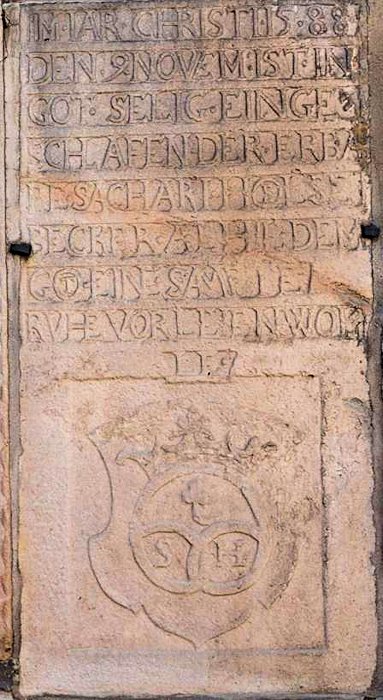 IM IAR CHRISTI 15 88
DEN 9 NOVEM IST IN
GOT SELIG EINGE
SCHLAFEN DER ERBA
RE SACHARIE HOLSE
BECKER ALHIE DEM
GOT EINE SAMFTE
RVHE VORLEIEN WOL
LE
S H